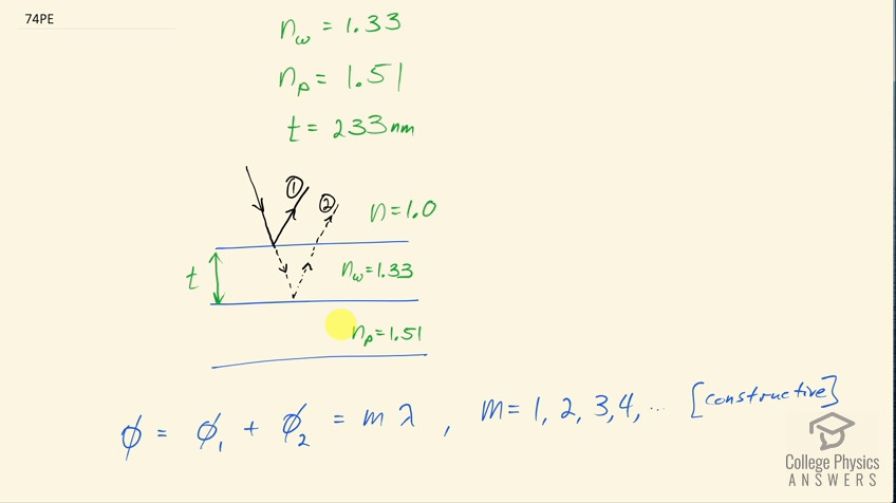 74PE
n_w = 1.33
n_p = 1.51
t = 233nm
① ② n=1.0
t n_w=1.33
n_p=1.51
ϕ = ϕ_1 + ϕ_2 = m λ , m = 1, 2, 3, 4, ... [constructive]
College Physics
ANSWERS